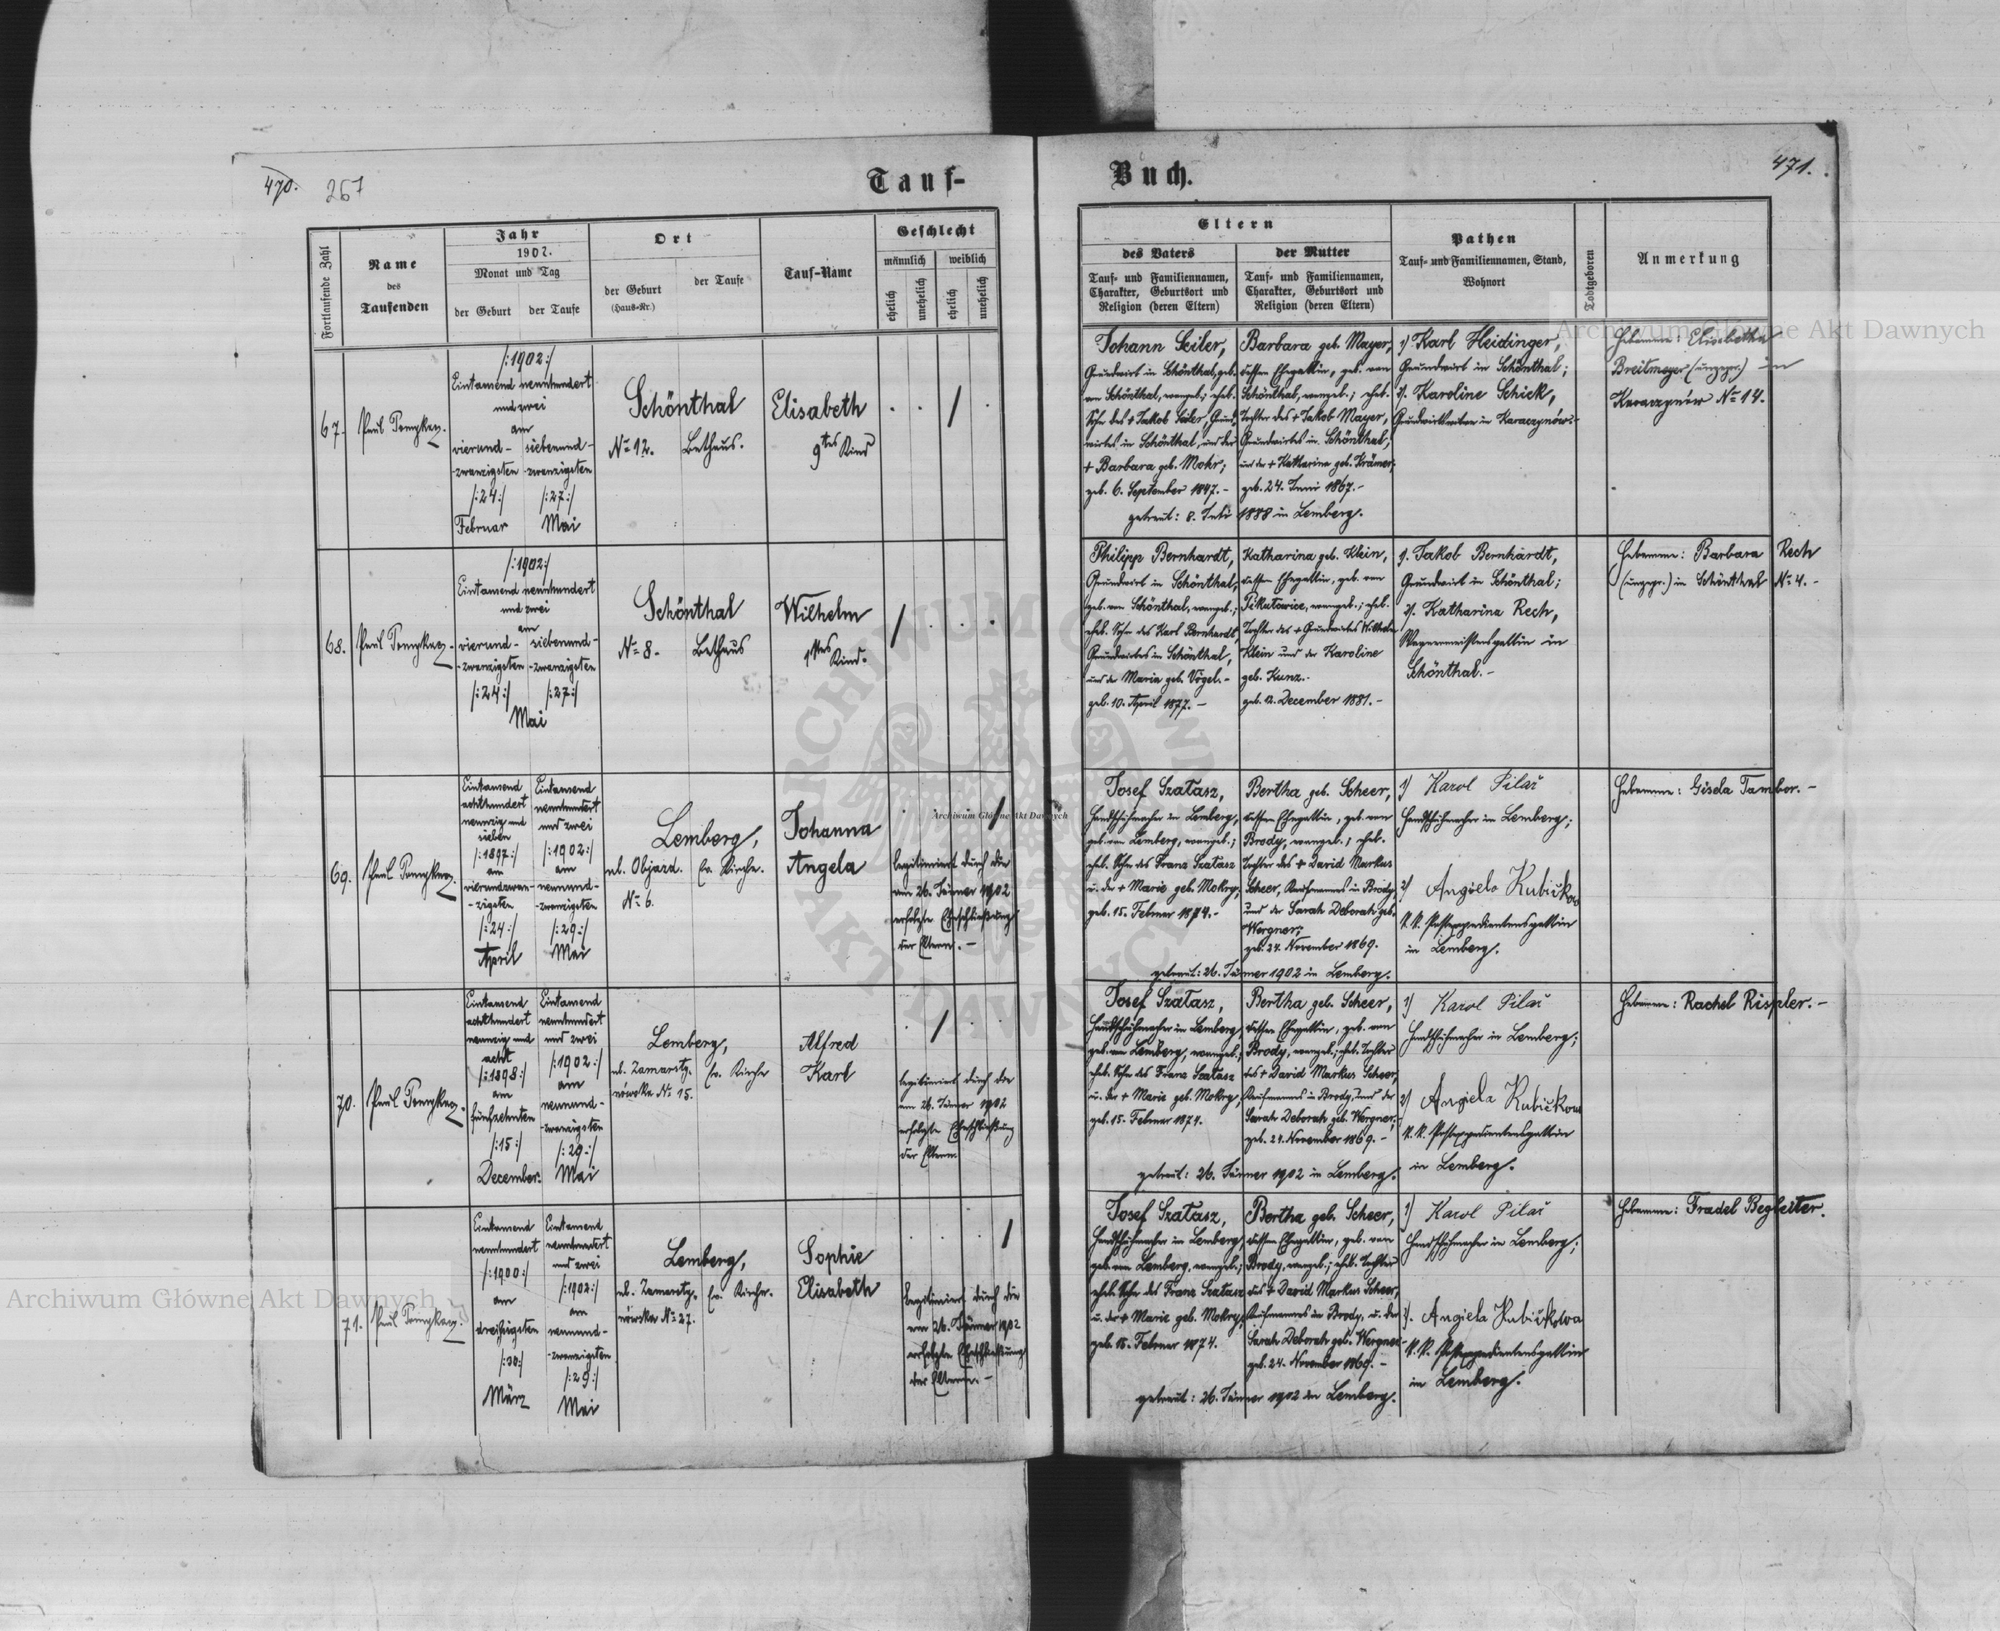 470. 267
Tauf-
Fortlaufende Zahl
Name
des
Taufenden
Jahr
1902.
Monat und Tag
der Geburt
der Taufe
Ort
der Geburt
(Haus-Nr.)
der Taufe
Tauf-Name
Geschlecht
männlich
weiblich
ehelich
unehelich
ehelich
unehelich
67.
/:1902:/
Eintausend neunhundert
und zwei
am
vierund-
-zwanzigsten
/:24:/
Februar
siebenund-
-zwanzigsten
/:27:/
Mai
Schönthal
No 12.
Bethaus.
Elisabeth
9tes Kind
68.
/:1902:/
Eintausend neunhundert
und zwei
am
vierund-
-zwanzigsten
/:24:/
siebenund-
-zwanzigsten
/:27:/
Mai
Schönthal
No 8.
Bethaus
Wilhelm
1tes Kind.
69.
Eintausend
achthundert
neunzig und
sieben
/:1897:/
am
vierundzwan-
-zigsten
/:24:/
April
Eintausend
neunhundert
und zwei
/:1902:/
am
neunund-
-zwanzigsten
/:29:/
Mai
Lemberg,
ul. Objazd.
No 6.
Ev. Kirche.
Johanna
Angela
legitimiert durch die
am 26. Jänner 1902
erfolgte Eheschließung
der Eltern. -
70.
Eintausend
achthundert
neunzig und
acht
/:1898:/
am
fünfzehnten
/:15:/
December.
Eintausend
neunhundert
und zwei
/:1902:/
am
neunund-
-zwanzigsten
/:29:/
Mai
Lemberg,
ul. Zamarsty-
nówska No 15.
Ev. Kirche
Alfred
Karl
legitimiert durch die
am 26. Jänner 1902
erfolgte Eheschließung
der Eltern
71.
Eintausend
neunhundert
/:1900:/
am
dreißigsten
/:30:/
März
Eintausend
neunhundert
und zwei
/:1902:/
am
neunund-
-zwanzigsten
/:29:/
Mai
Lemberg,
ul. Zamarsty-
nówska No 27.
Ev. Kirche.
Sophie
Elisabeth
legitimiert durch die
am 26. Jänner 1902
erfolgte Eheschließung
der Eltern. -
Buch.
471.
Eltern
des Vaters
Tauf- und Familiennamen,
Charakter, Geburtsort und
Religion (deren Eltern)
der Mutter
Tauf- und Familiennamen,
Charakter, Geburtsort und
Religion (deren Eltern)
Pathen
Tauf- und Familiennamen, Stand,
Wohnort
Todtgeboren
Anmerkung
Johann Seiler,
Grundwirt in Schönthal, geb.
von Schönthal, evangel.; ehel.
Sohn des + Jakob Seiler, Grund-
wirtes in Schönthal, und der
+ Barbara geb. Mohr;
geb. 6. September 1847. -
Barbara geb. Mayer,
dessen Ehegattin, geb. von
Schönthal, evangel.; ehel.
Tochter des + Jakob Mayer,
Grundwirtes in Schönthal,
und der + Katharina geb. Krämer;
geb. 24. Juni 1867. -
getraut: 8. Juli 1888 in Lemberg.
1) Karl Heidinger,
Grundwirt in Schönthal;
2). Karoline Schick,
in Karaczynów. -
Hebamme: Elisabetha
Breitmayer (ungepr.) in
Karaczynów No 14.
Philipp Bernhardt,
Grundwirt in Schönthal,
geb. von Schönthal, evangel.;
ehel. Sohn des Karl Bernhardt
Grundwirtes in Schönthal,
und der Maria geb. Vogel. -
geb. 10. April 1877. -
Katharina geb. Klein,
dessen Ehegattin, geb. von
evangel.; ehel.
Tochter des + Grundwirtes Wilhelm
Klein und der Karoline
geb. Kunz. -
geb. 12. December 1881. -
1). Jakob Bernhardt,
Grundwirt in Schönthal;
2). Katharina Rech,
Wagnermeistersgattin in
Schönthal. -
Hebamme: Barbara Rech
(ungepr.) in Schönthal No 4. -
Josef Szatasz,
Handschuhmacher in Lemberg,
geb. von Lemberg, evangel.;
ehel. Sohn des Franz Szatasz
u. der + Marie geb. Mokry,
geb. 15. Februar 1874. -
Bertha geb. Scheer,
dessen Ehegattin, geb. von
Brody, evangel.; ehel.
Tochter des + David Markus
Scheer, Kaufmannes in Brody,
und der Sarah Deborah geb.
Wergner;
geb. 24. November 1869.
getraut: 26. Jänner 1902 in Lemberg.
1) Karol Pilař
Handschuhmacher in Lemberg;
2) Angiela Kubičkowa
k. k. Postexpedientensgattin
in Lemberg.
Hebamme: Gisela Tambor. -
Josef Szatasz,
Handschuhmacher in Lemberg,
geb. von Lemberg, evangel.;
ehel. Sohn des Franz Szatasz
u. der + Marie geb. Mokry,
geb. 15. Februar 1874.
Bertha geb. Scheer,
dessen Ehegattin, geb. von
Brody, evangel.; ehel. Tochter
des + David Markus Scheer,
Kaufmannes in Brody, und der
Sarah Deborah geb. Wergner;
geb. 24. November 1869. -
getraut: 26. Jänner 1902 in Lemberg.
1) Karol Pilař
Handschuhmacher in Lemberg;
2) Angiela Kubičkowa
k. k. Postexpedientensgattin
in Lemberg.
Hebamme: Rachel Rispler. -
Josef Szatasz,
Handschuhmacher in Lemberg,
geb. von Lemberg, evangel.;
ehel. Sohn des Franz Szatasz
u. der + Marie geb. Mokry,
geb. 15. Februar 1874.
Bertha geb. Scheer,
dessen Ehegattin, geb. von
Brody, evangel.; ehel. Tochter
des + David Markus Scheer,
Kaufmannes in Brody, u. der
Sarah Deborah geb. Wergner
geb. 24. November 1869. -
getraut: 26. Jänner 1902 in Lemberg.
1) Karol Pilař
Handschuhmacher in Lemberg;
2). Angiela Kubičkowa
k. k. Postexpedientensgattin
in Lemberg.
Hebamme: Fradel Begleiter.
Archiwum Główne Akt Dawnych
Archiwum Główne Akt Dawnych
Archiwum Główne Akt Dawnych
ARCHIWUM GŁÓWNE
AKT DAWNYCH